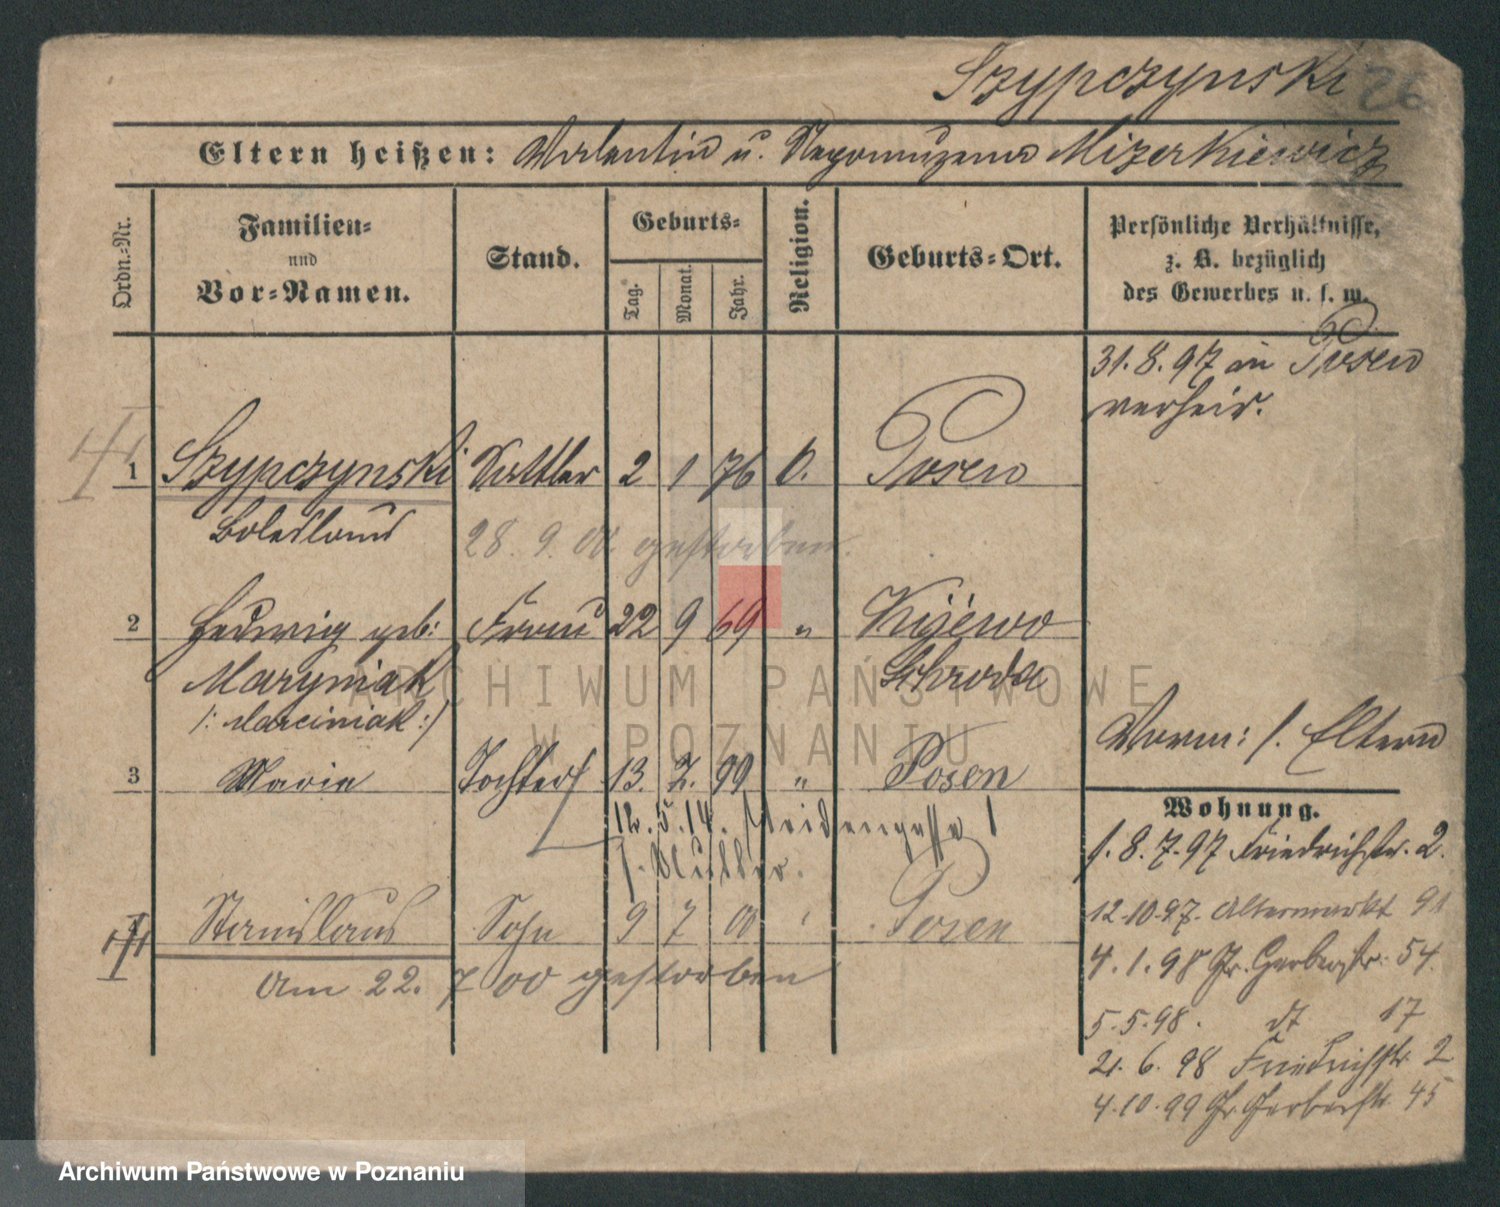 Szypczynski 26
Eltern heißen: Valentin u. Nepomuzena Mizerkiewicz
Ordn.-Nr.
Familien- und Vor-Namen.
Stand.
Geburts-
Tag. Monat. Jahr.
Religion.
Geburts-Ort.
Persönliche Verhältnisse,
z. B. bezüglich
des Gewerbes u. s. w.
31.8.97 in Posen
verheir.
1 Szypczynski Sattler 2 1 76 k. Posen
Boleslaus 28. 9. 00 gestorben.
2 Hedwig geb: Frau 22 9 69 " Kijewo
Maryniak Schroda
/: Marciniak :/
Verm: s. Eltern
3 Marie Tochter 13. 2. 99 " Posen
12. 5. 14.
s. Mutter.
Stanislaus Sohn 9 7 00 ' Posen
Am 22. 7 00 gestorben
Wohnung.
s. 8.7.97 Friedrichstr. 2.
12.10.97. Altermarkt 91
4.1.98 Gr. Gerberstr. 54.
5.5.98. dt 17
21.6.98 Friedrichstr. 2
4.10.99 Gr. Gerberstr. 45
ARCHIWUM PAŃSTWOWE
W POZNANIU
Archiwum Państwowe w Poznaniu